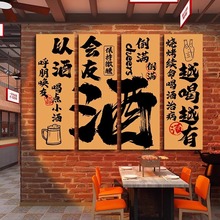 以酒
呼朋唤友
喝点小酒
会友
保持微醺
酒
倒满
倒满
cheers
烧烤续命喝酒治病
越喝越有
酒